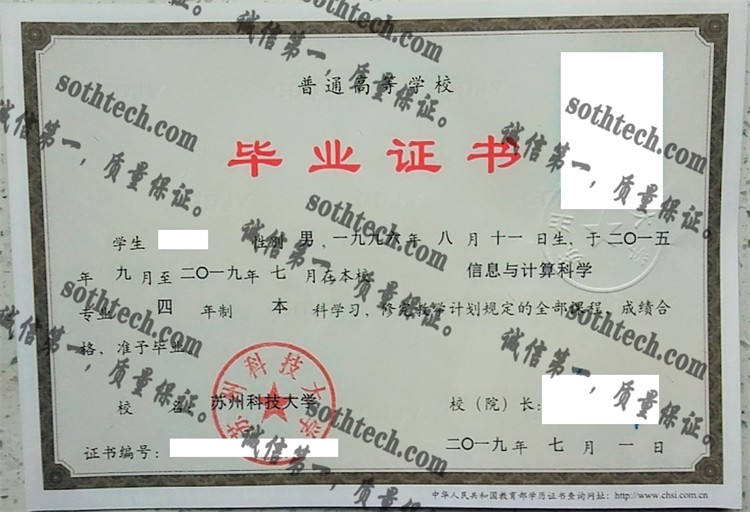 普通高等学校
毕业证书
学生 性别 男，一九九六年 八 月 十一 日生，于二〇一五
年 九 月至二〇一九年 七 月在本校 信息与计算科学
专业 四 年制 本 科学习，修完教学计划规定的全部课程，成绩合
格，准予毕业。
校 名： 苏州科技大学 校（院）长：
证书编号： 二〇一九年 七 月 一 日
中华人民共和国教育部学历证书查询网址：http://www.chsi.com.cn
苏州科技大学
sothtech.com
诚信第一，质量保证。
sothtech.com
诚信第一，质量保证。
sothtech.com
诚信第一，质量保证。
sothtech.com
诚信第一，质量保证。
sothtech.com
诚信第一，质量保证。
sothtech.com
诚信第一，质量保证。
sothtech.com
诚信第一，质量保证。
sothtech.com
诚信第一，质量保证。